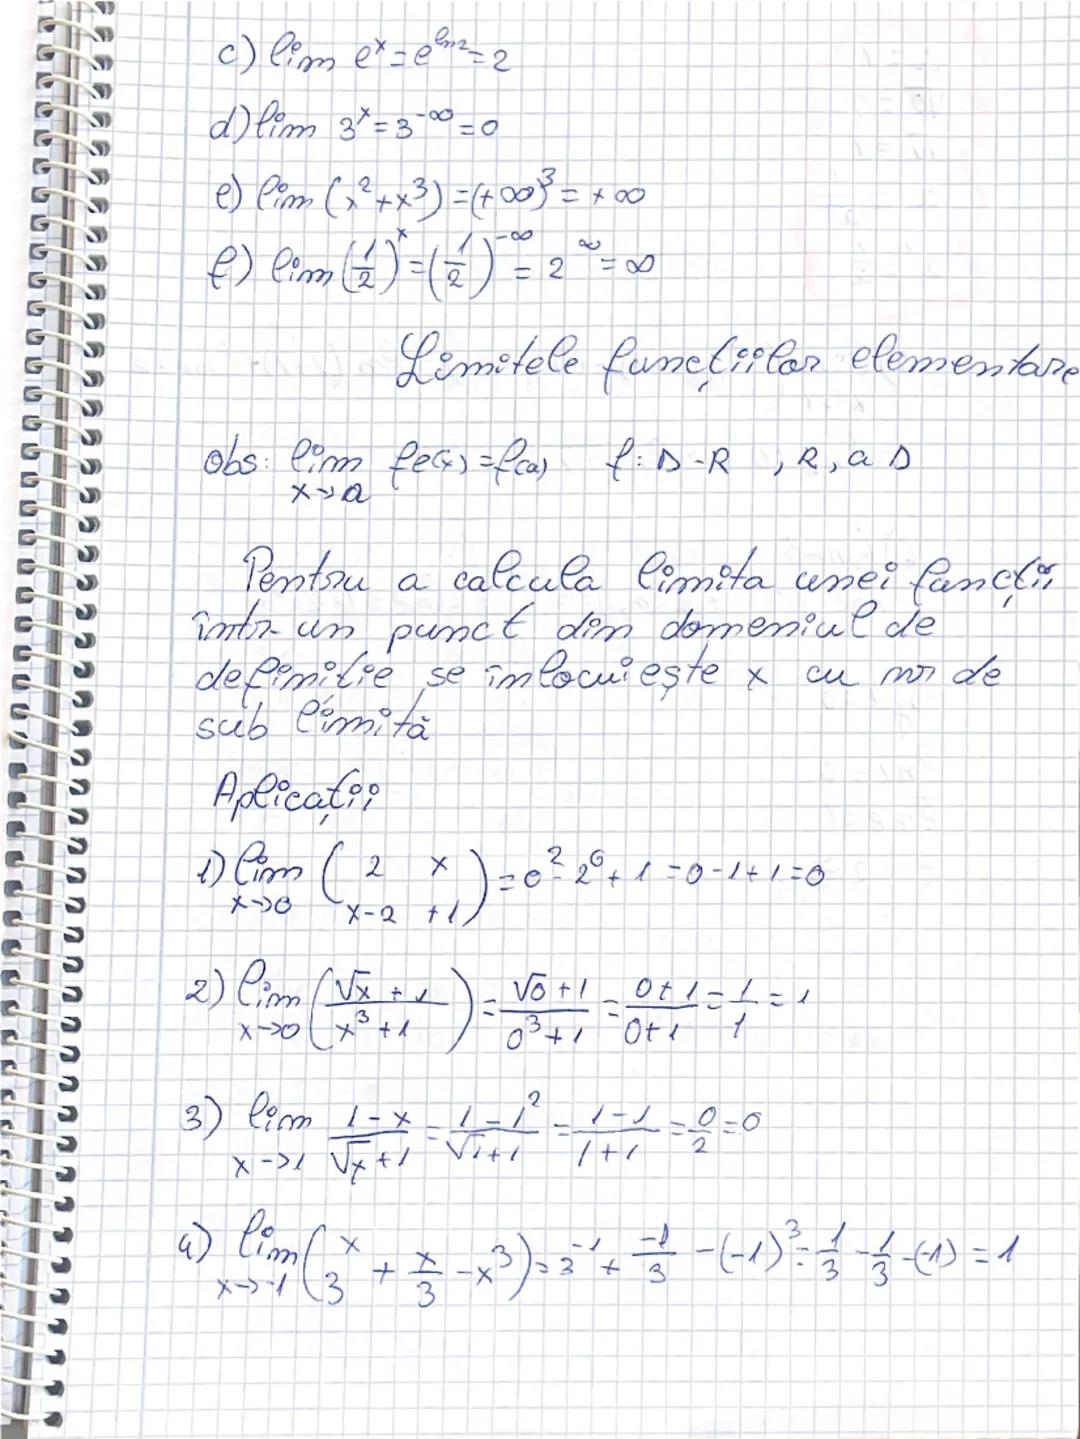 c) lim eˣ = e^ln2 = 2
d) lim 3ˣ = 3^-∞ = 0
e) lim (x² + x³) = (+∞)³ = +∞
f) lim (1/2)ˣ = (1/2)^-∞ = 2^∞ = ∞
Limitele funcțiilor elementare
obs: lim fe(x) = f(a) f: D-R , R, a D
x→a
Pentru a calcula limita unei funcții
într-un punct din domeniul de
definiție se înlocuiește x cu nr de
sub limită
Aplicații
1) lim (2 x
x→0 x-2 +1) = 0² - 2⁰ + 1 = 0-1+1 = 0
2) lim x→0 ((√x + 1)/(x³ + 1)) = (√0 + 1)/(0³ + 1) = (0+1)/(0+1) = 1/1 = 1
3) lim x→1 (1-x)/(√x + 1) = (1-1²)/(√1 + 1) = (1-1)/(1+1) = 0/2 = 0
4) lim x→-1 (3ˣ + x/3 - x³) = 3⁻¹ + -1/3 - (-1)³ = 1/3 - 1/3 - (-1) = 1